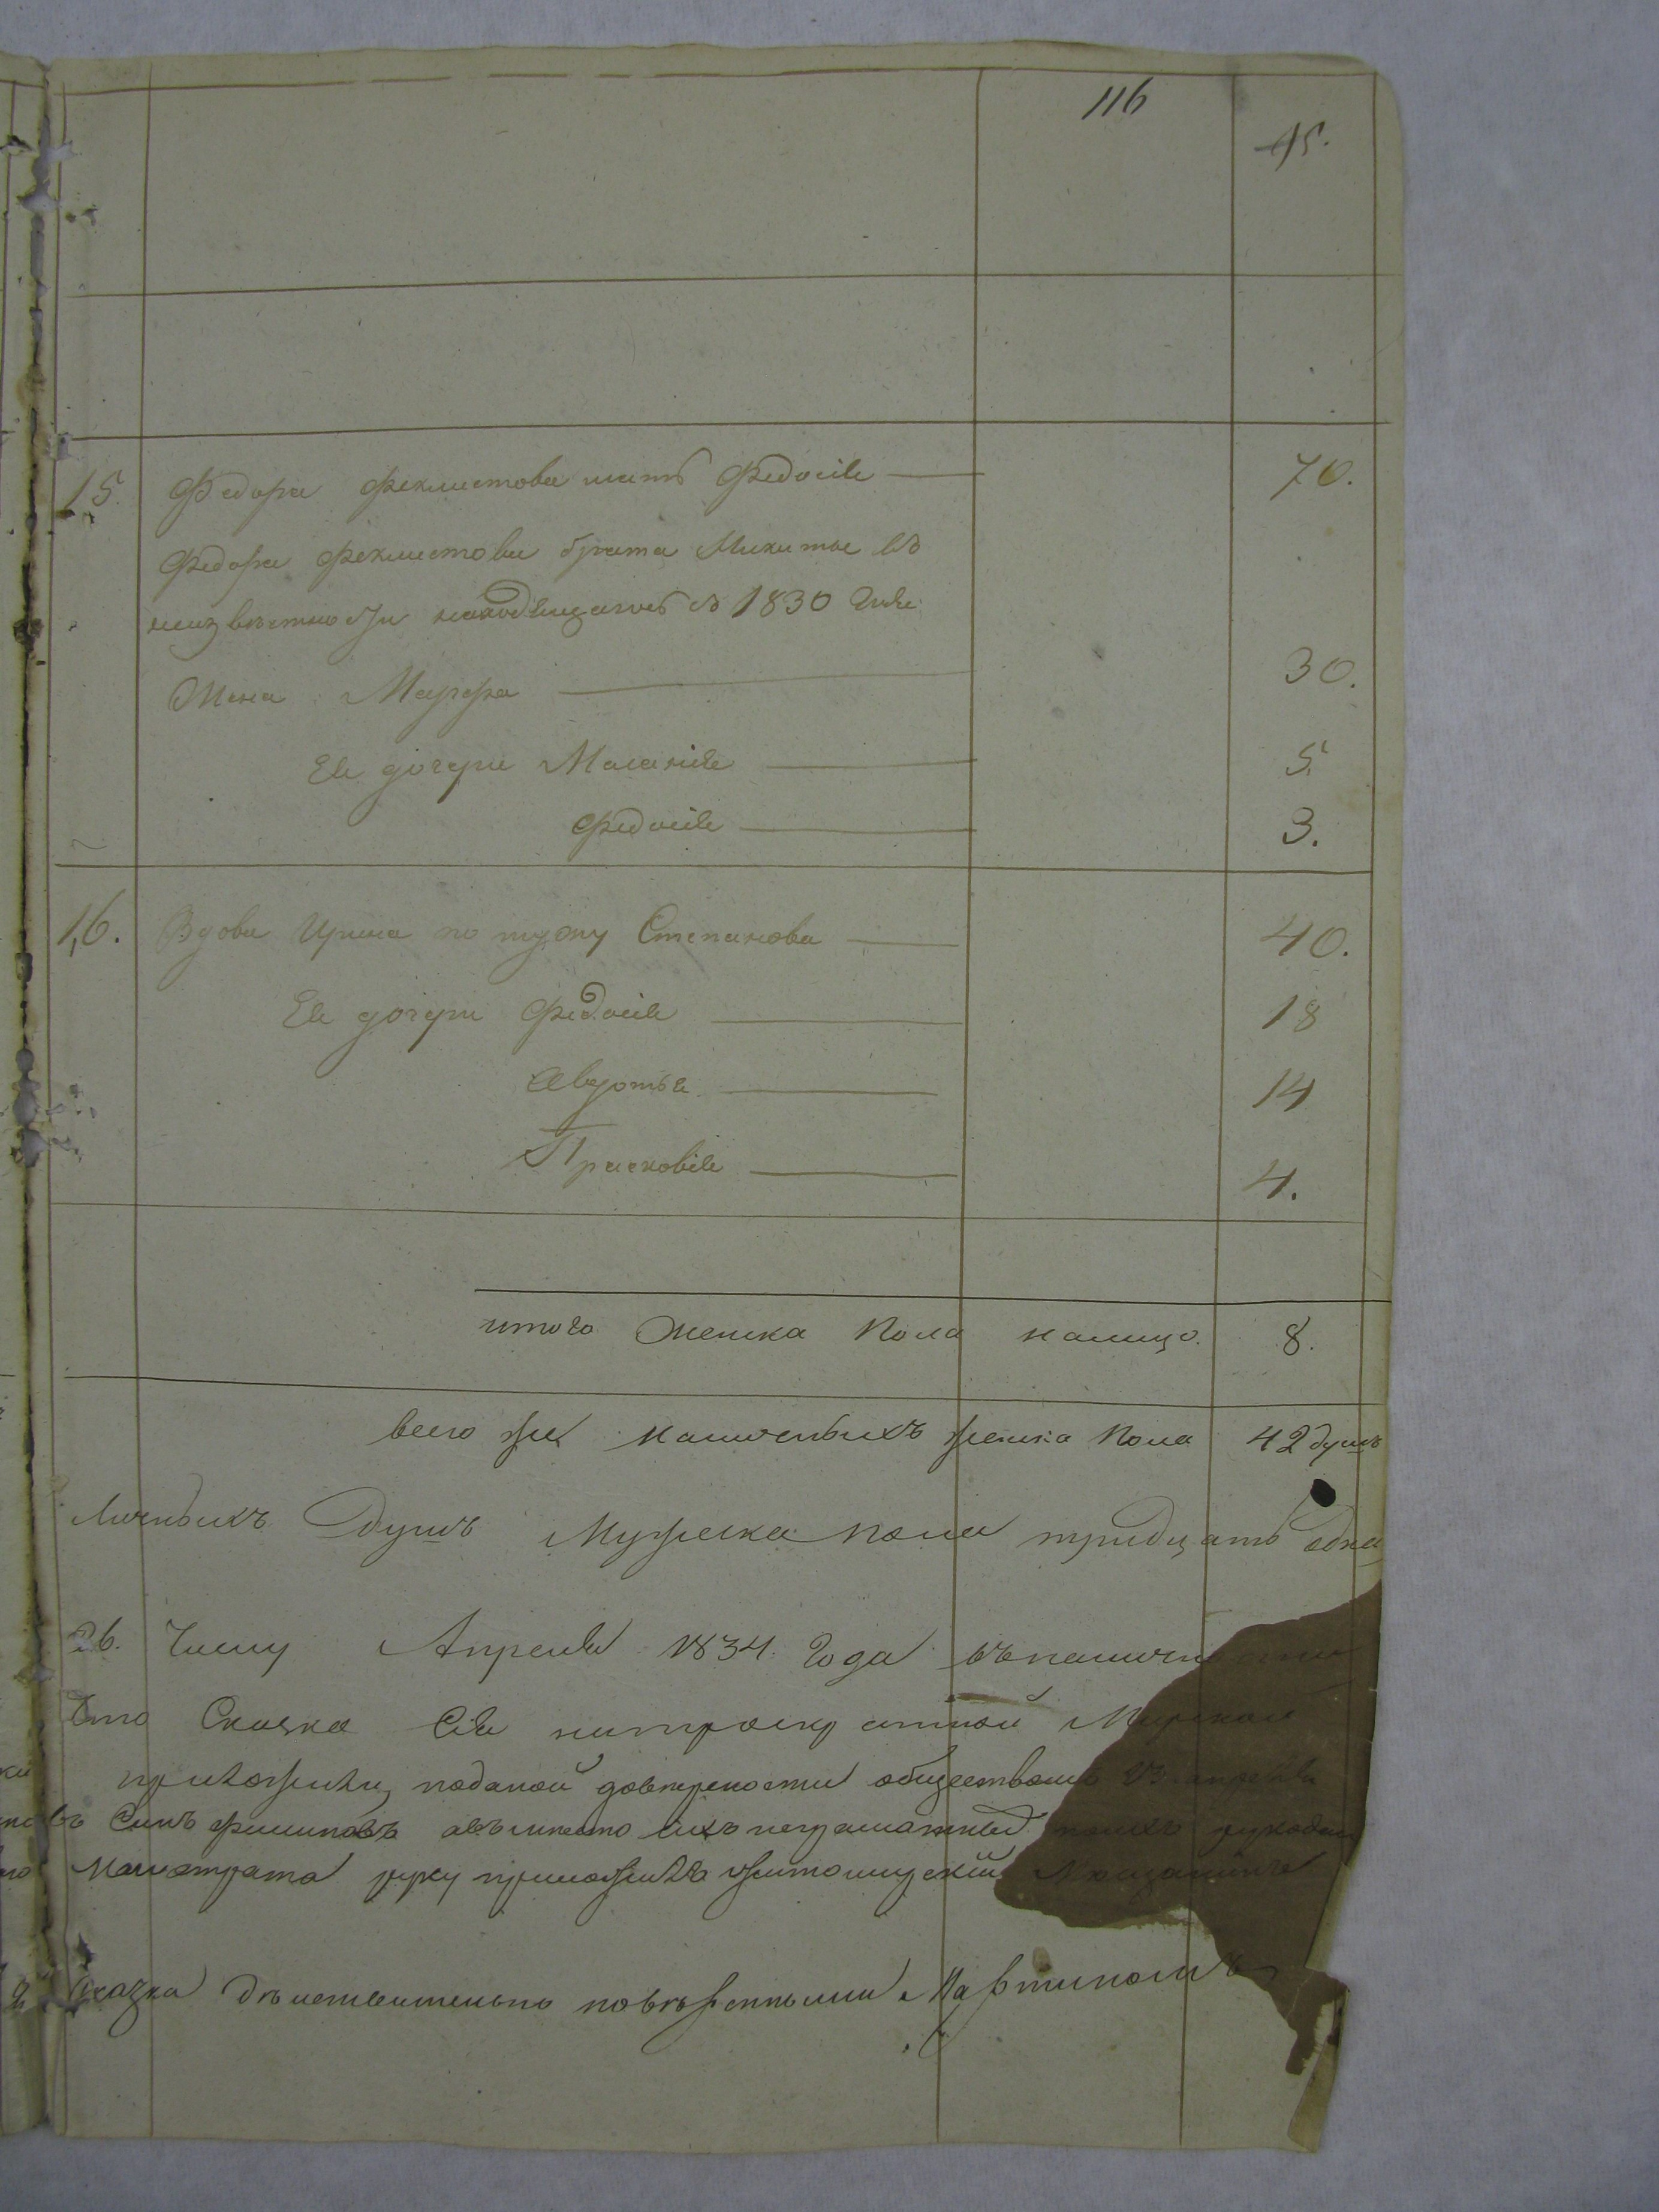 116
45.
15. Федора Феклистова мать Федосія 70.
Федора Феклистова брата Микиты въ
неизвѣстности находящагось съ 1830 года
Жена Марфа 30.
Ея дочери Маланія 5.
Федосія 3.
16. Вдова Ирина по мужу Степанова 40.
Ея дочери Федосія 18
Авдотья 14
Прасковія 4.
итого женска пола налицо. 8.
всего же наличныхъ женска пола 42 душъ
личныхъ душъ мужеска пола тридцать одна
26. Числу Апреля 1834. Года
Что Сказка Сія
поданой довѣрености обществомъ
Сынъ Филиповъ неграматныхъ
Магистрата руку приложилъ Житомирскій Мѣщанинъ
Сказка дѣйствительно повѣренными Мартиномъ